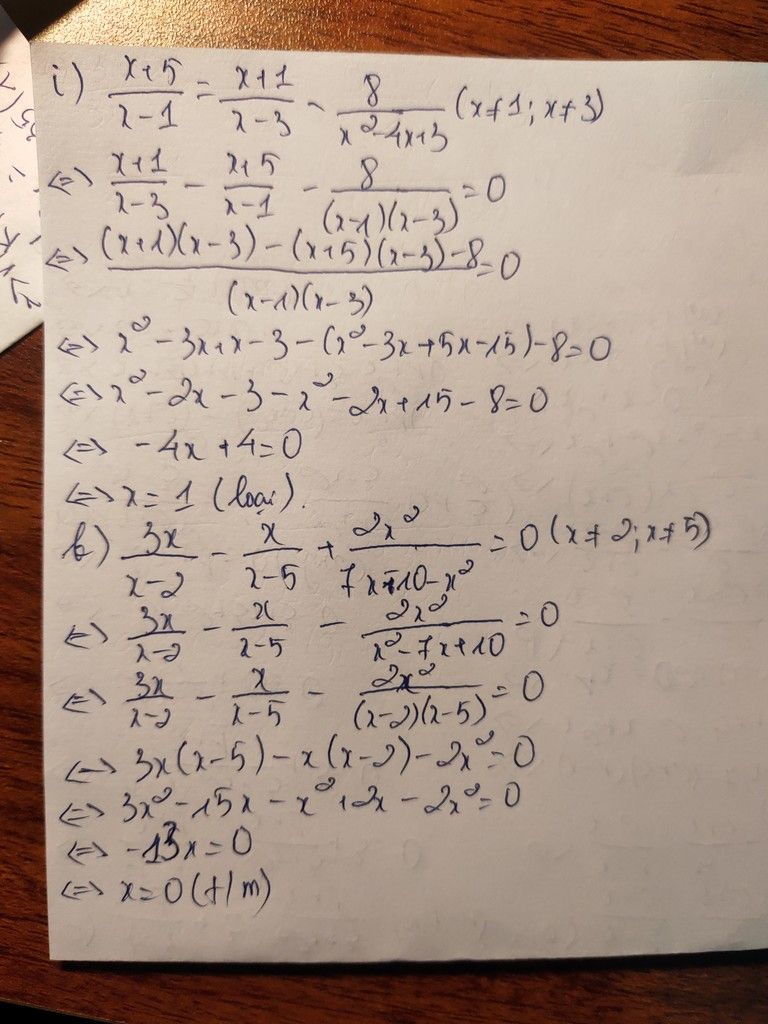 i) \frac{x+5}{x-1} = \frac{x+1}{x-3} - \frac{8}{x^2-4x+3} (x≠1; x≠3)
<=> \frac{x+1}{x-3} - \frac{x+5}{x-1} - \frac{8}{(x-1)(x-3)} = 0
<=> \frac{(x+1)(x-3) - (x+5)(x-3) - 8}{(x-1)(x-3)} = 0
<=> x^2 - 3x + x - 3 - (x^2 - 3x + 5x - 15) - 8 = 0
<=> x^2 - 2x - 3 - x^2 - 2x + 15 - 8 = 0
<=> -4x + 4 = 0
<=> x = 1 (loại).
k) \frac{3x}{x-2} - \frac{x}{x-5} + \frac{2x^2}{7x-10-x^2} = 0 (x≠2; x≠5)
<=> \frac{3x}{x-2} - \frac{x}{x-5} - \frac{2x^2}{x^2-7x+10} = 0
<=> \frac{3x}{x-2} - \frac{x}{x-5} - \frac{2x^2}{(x-2)(x-5)} = 0
<=> 3x(x-5) - x(x-2) - 2x^2 = 0
<=> 3x^2 - 15x - x^2 + 2x - 2x^2 = 0
<=> -13x = 0
<=> x = 0 (t/m)